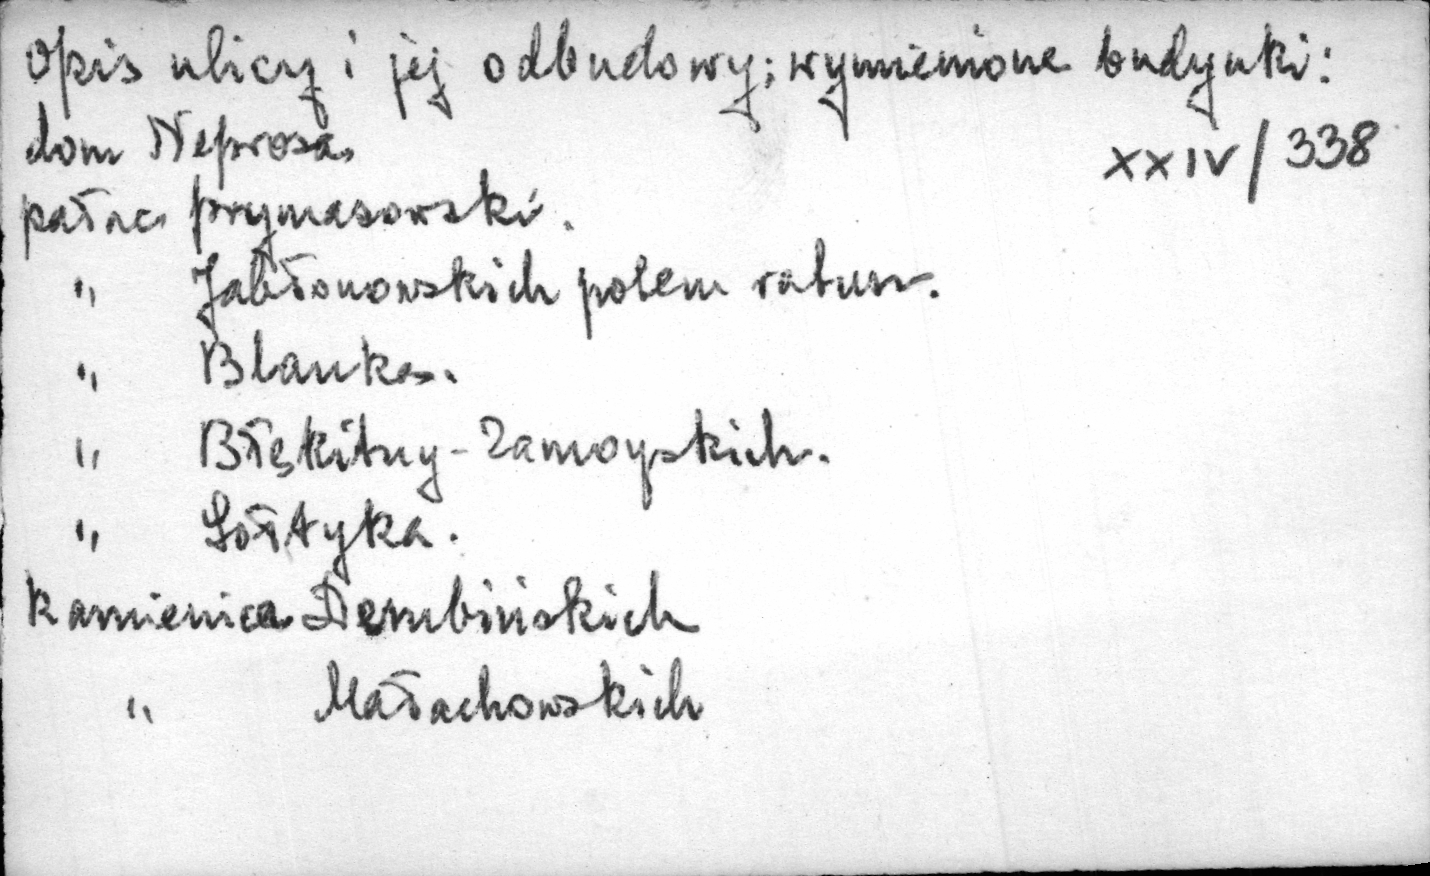 Opis ulicy i jej odbudowy; wymienione budynki:
dom Neprosa.
XXIV/338
pałac prymasowski.
" Jabłonowskich potem ratusz.
" Blanka.
" Błękitny-Zamoyskich.
" Sołtyka.
kamienica Dembińskich
" Małachowskich